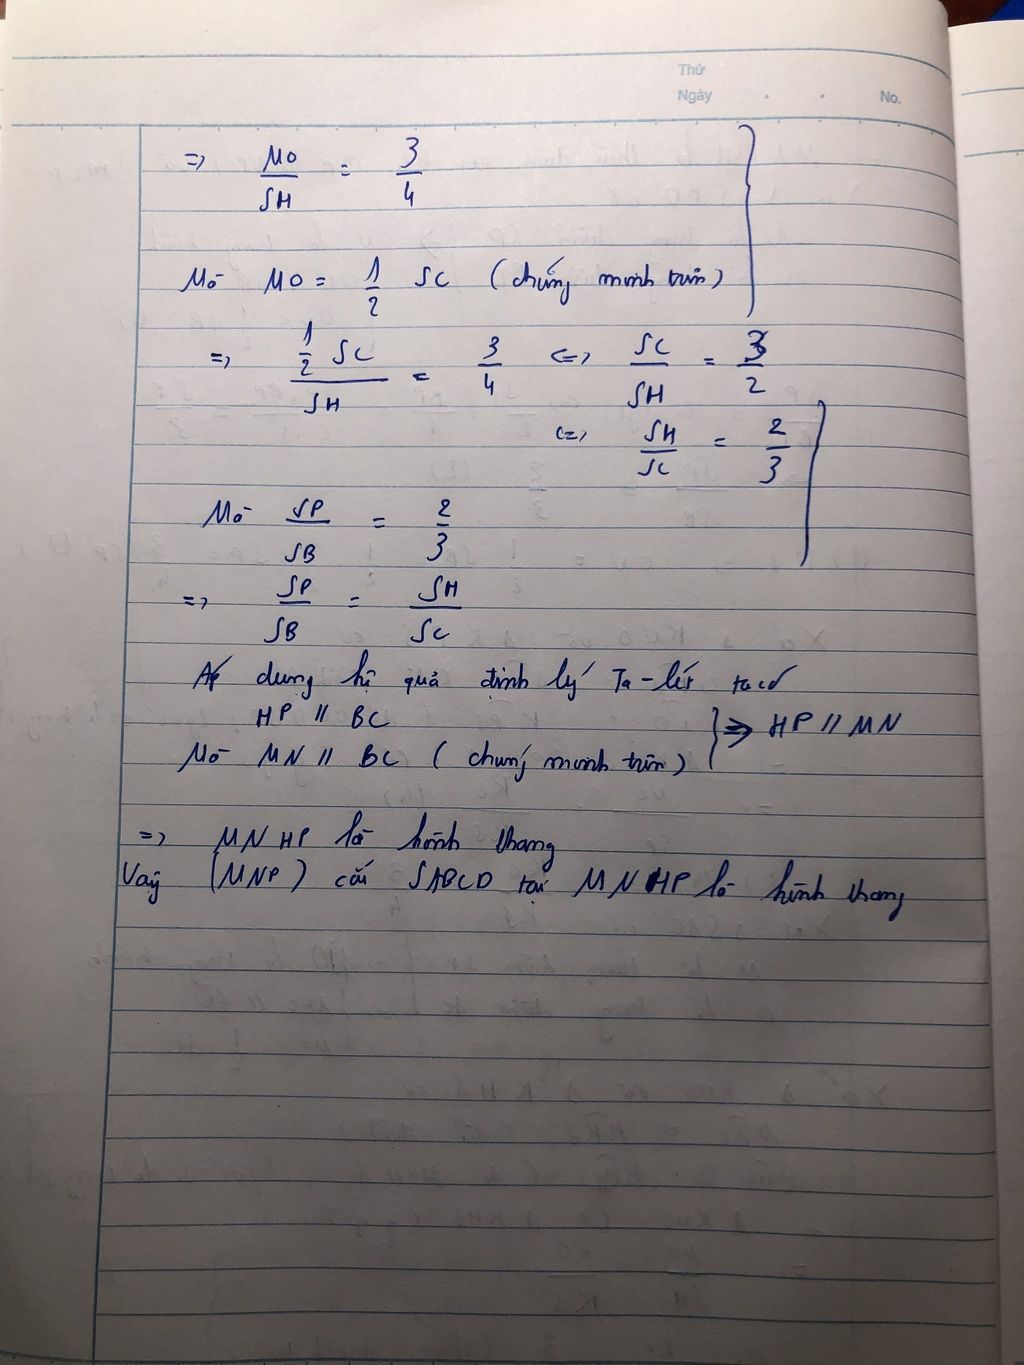 Thứ
Ngày . . No.
=> MO/SH = 3/4
Mà MO = 1/2 SC (chứng minh trên)
=> (1/2 SC)/SH = 3/4 <=> SC/SH = 3/2
<=> SH/SC = 2/3
Mà SP/SB = 2/3
=> SP/SB = SH/SC
Áp dụng hệ quả định lý Ta-lét ta có
HP // BC
=> HP // MN
Mà MN // BC (chứng minh trên)
=> MNHP là hình thang
Vậy (MNP) cắt SABCD tại MNHP là hình thang